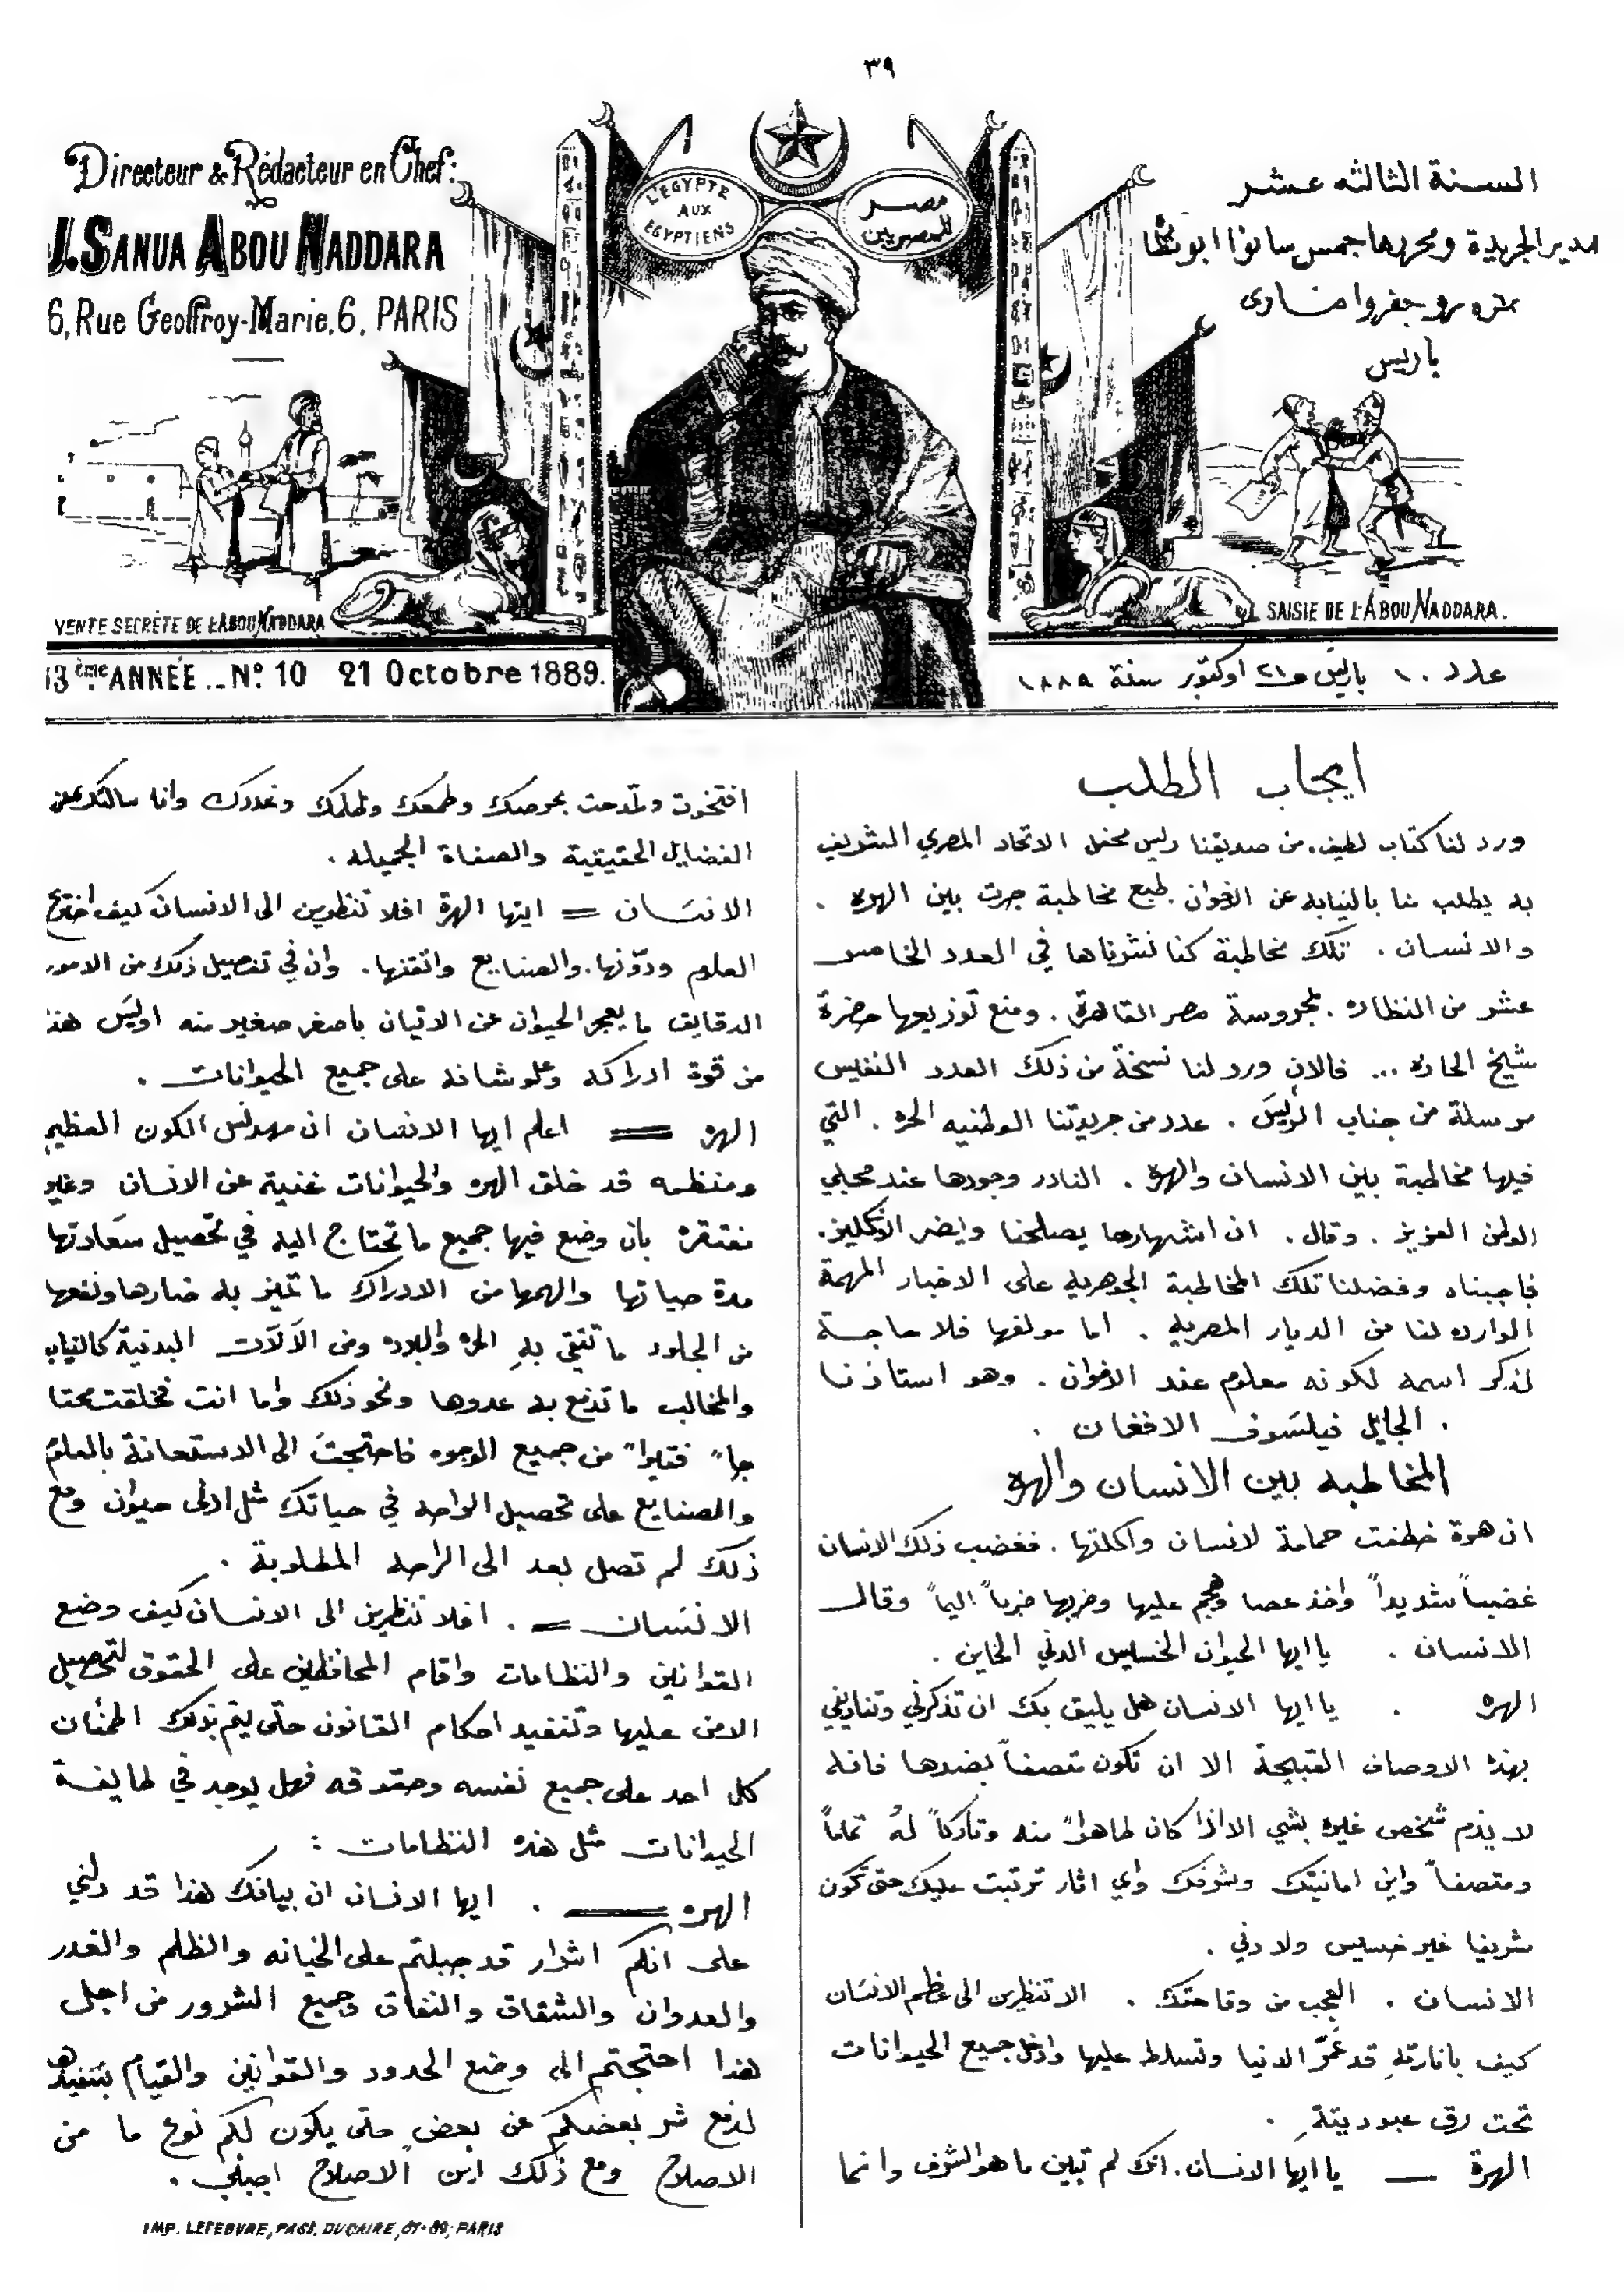 ٣٩
Directeur & Rédacteur en Chef:
J. SANUA ABOU NADDARA
6, Rue Geoffroy-Marie, 6, PARIS
L'EGYPTE
AUX
EGYPTIENS
مصر
للمصريين
السنة الثالثه عشر
مدير الجريدة ومحررها جمس سانوا ابو نظا
نمره ٦ رو جفروا ماري
باريس
VENTE SECRÈTE DE L'ABOU NADDARA
SAISIE DE L'ABOU NADDARA.
13ème ANNÉE.. No. 10 21 Octobre 1889.
عدد ١٠ باريس في ٢١ اوكتوبر سنة ١٨٨٩
ايجاب الطلب
ورد لنا كتاب لطيف من صديقنا رئيس محفل الاتحاد المصري الشريف
به يطلب منا بالنيابه عن الاخوان طبع مخاطبة جرت بين الهره .
والانسان . تلك مخاطبة كنا نشرناها في العدد الخامس
عشر من النظاره . بمحروسة مصر القاهرة . ومنع توزيعها حضرة
شيخ الحاره ... فالان ورد لنا نسخة من ذلك العدد النفيس
مرسلة من جناب الرئيس . عدد من جريدتنا الوطنيه الحره . التي
فيها مخاطبة بين الانسان والهره . النادر وجودها عند محبي
الوطن العزيز . وقال . ان اشهارها يصلحنا ويضر الانكليز .
فاجبناه وفضلنا تلك المخاطبة الجوهريه على الاخبار المهمة
الوارده لنا من الديار المصريه . اما مولفها فلا حاجة
لذكر اسمه لكونه معلوم عند الاخوان . وهو استاذنا
. الجليل فيلسوف الافغان .
المخاطبه بين الانسان والهره
ان هرة خطفت حمامة لانسان واكلتها . فغضب ذلك الانسان
غضباً شديداً واخذ عصا وهجم عليها وضربها ضرباً اليماً وقال
الانسان . يا ايها الحيوان الخسيس الدني الخاين .
الهره . يا ايها الانسان هل يليق بك ان تذكرني وتناديني
بهذه الاوصاف القبيحة الا ان تكون متصفاً بضدها فانه
لا يذم شخص غيره بشي الا اذا كان طاهراً منه وتاركاً لهُ تماماً
ومتصفاً واين امانيتك وشرفك واي اثار ترتبت عليك حتى تكون
شريفا غير خسيس ولا دني .
الانسان . العجب من وقاحتك . الا تنظرين الى عظم الانسان
كيف بانارتهِ قد عَمَّر الدنيا وتسلط عليها وادخل جميع الحيوانات
تحت رق عبوديتهِ .
الهرة — يا ايها الانسان . انك لم تبين ما هو الشرف وانما
افتخرت وتمدحت بحرصك وطمعك وظلمك وغدرك وانا سالتك عن
الفضايل الحقيقية والصفاة الجميله .
الانسان = ايتها الهرة افلا تنظرين الى الانسان كيف اخترع
العلوم ودوّنها . والصنايع واتقنها . وان في تفصيل ذلك من الامور
الدقايق ما يعجز الحيوان عن الاتيان باصغر صغير منه اوليس هذ
من قوة ادراكه وعلو شانه على جميع الحيوانات .
الهره = اعلم ايها الانسان ان مهندس الكون العظيم
ومنظمه قد خلق الهره والحيوانات غنية عن الانسان وغير
مفتقرة بان وضع فيها جميع ما تحتاج اليه في تحصيل سعادتها
مدة حياتها والهمها من الادراك ما تميز به ضارها ونفعها
من الجلود ما تتقي بهِ الحر والبرد ومن الآلات البدنية كالنياب
والمخالب ما تدفع به عدوها ونحو ذلك واما انت فخلقت محتا
جاً فقيراً من جميع الوجوه فاحتجت الى الاستعانة بالعلم
والصنايع على تحصيل الراحه في حياتك مثل ادنى حيوان ومع
ذلك لم تصل بعد الى الراحه المطلوبة .
الانسان = . افلا تنظرين الى الانسان كيف وضع
القوانين والنظامات واقام المحافظين على الحقوق لتحصيل
الامن عليها وتنفيد احكام القانون حتى يتم بذلك اطمئنان
كل احد على جميع نفسه وحقوقه فهل يوجد في طايفة
الحيوانات مثل هذه النظامات :
الهره = . ايها الانسان ان بيانك هذا قد دلني
على انكم اشرار قد جبلتم على الخيانه والظلم والغدر
والعدوان والشقاق والنفاق وجميع الشرور من اجل
هذا احتجتم الى وضع الحدود والقوانين والقيام بتنفيدها
لدفع شر بعضكم عن بعض حتى يكون لكم نوع ما من
الاصلاح ومع ذلك اين الاصلاح اجبني .
IMP. LEFEBVRE, PASS. DU CAIRE, 87-89, PARIS